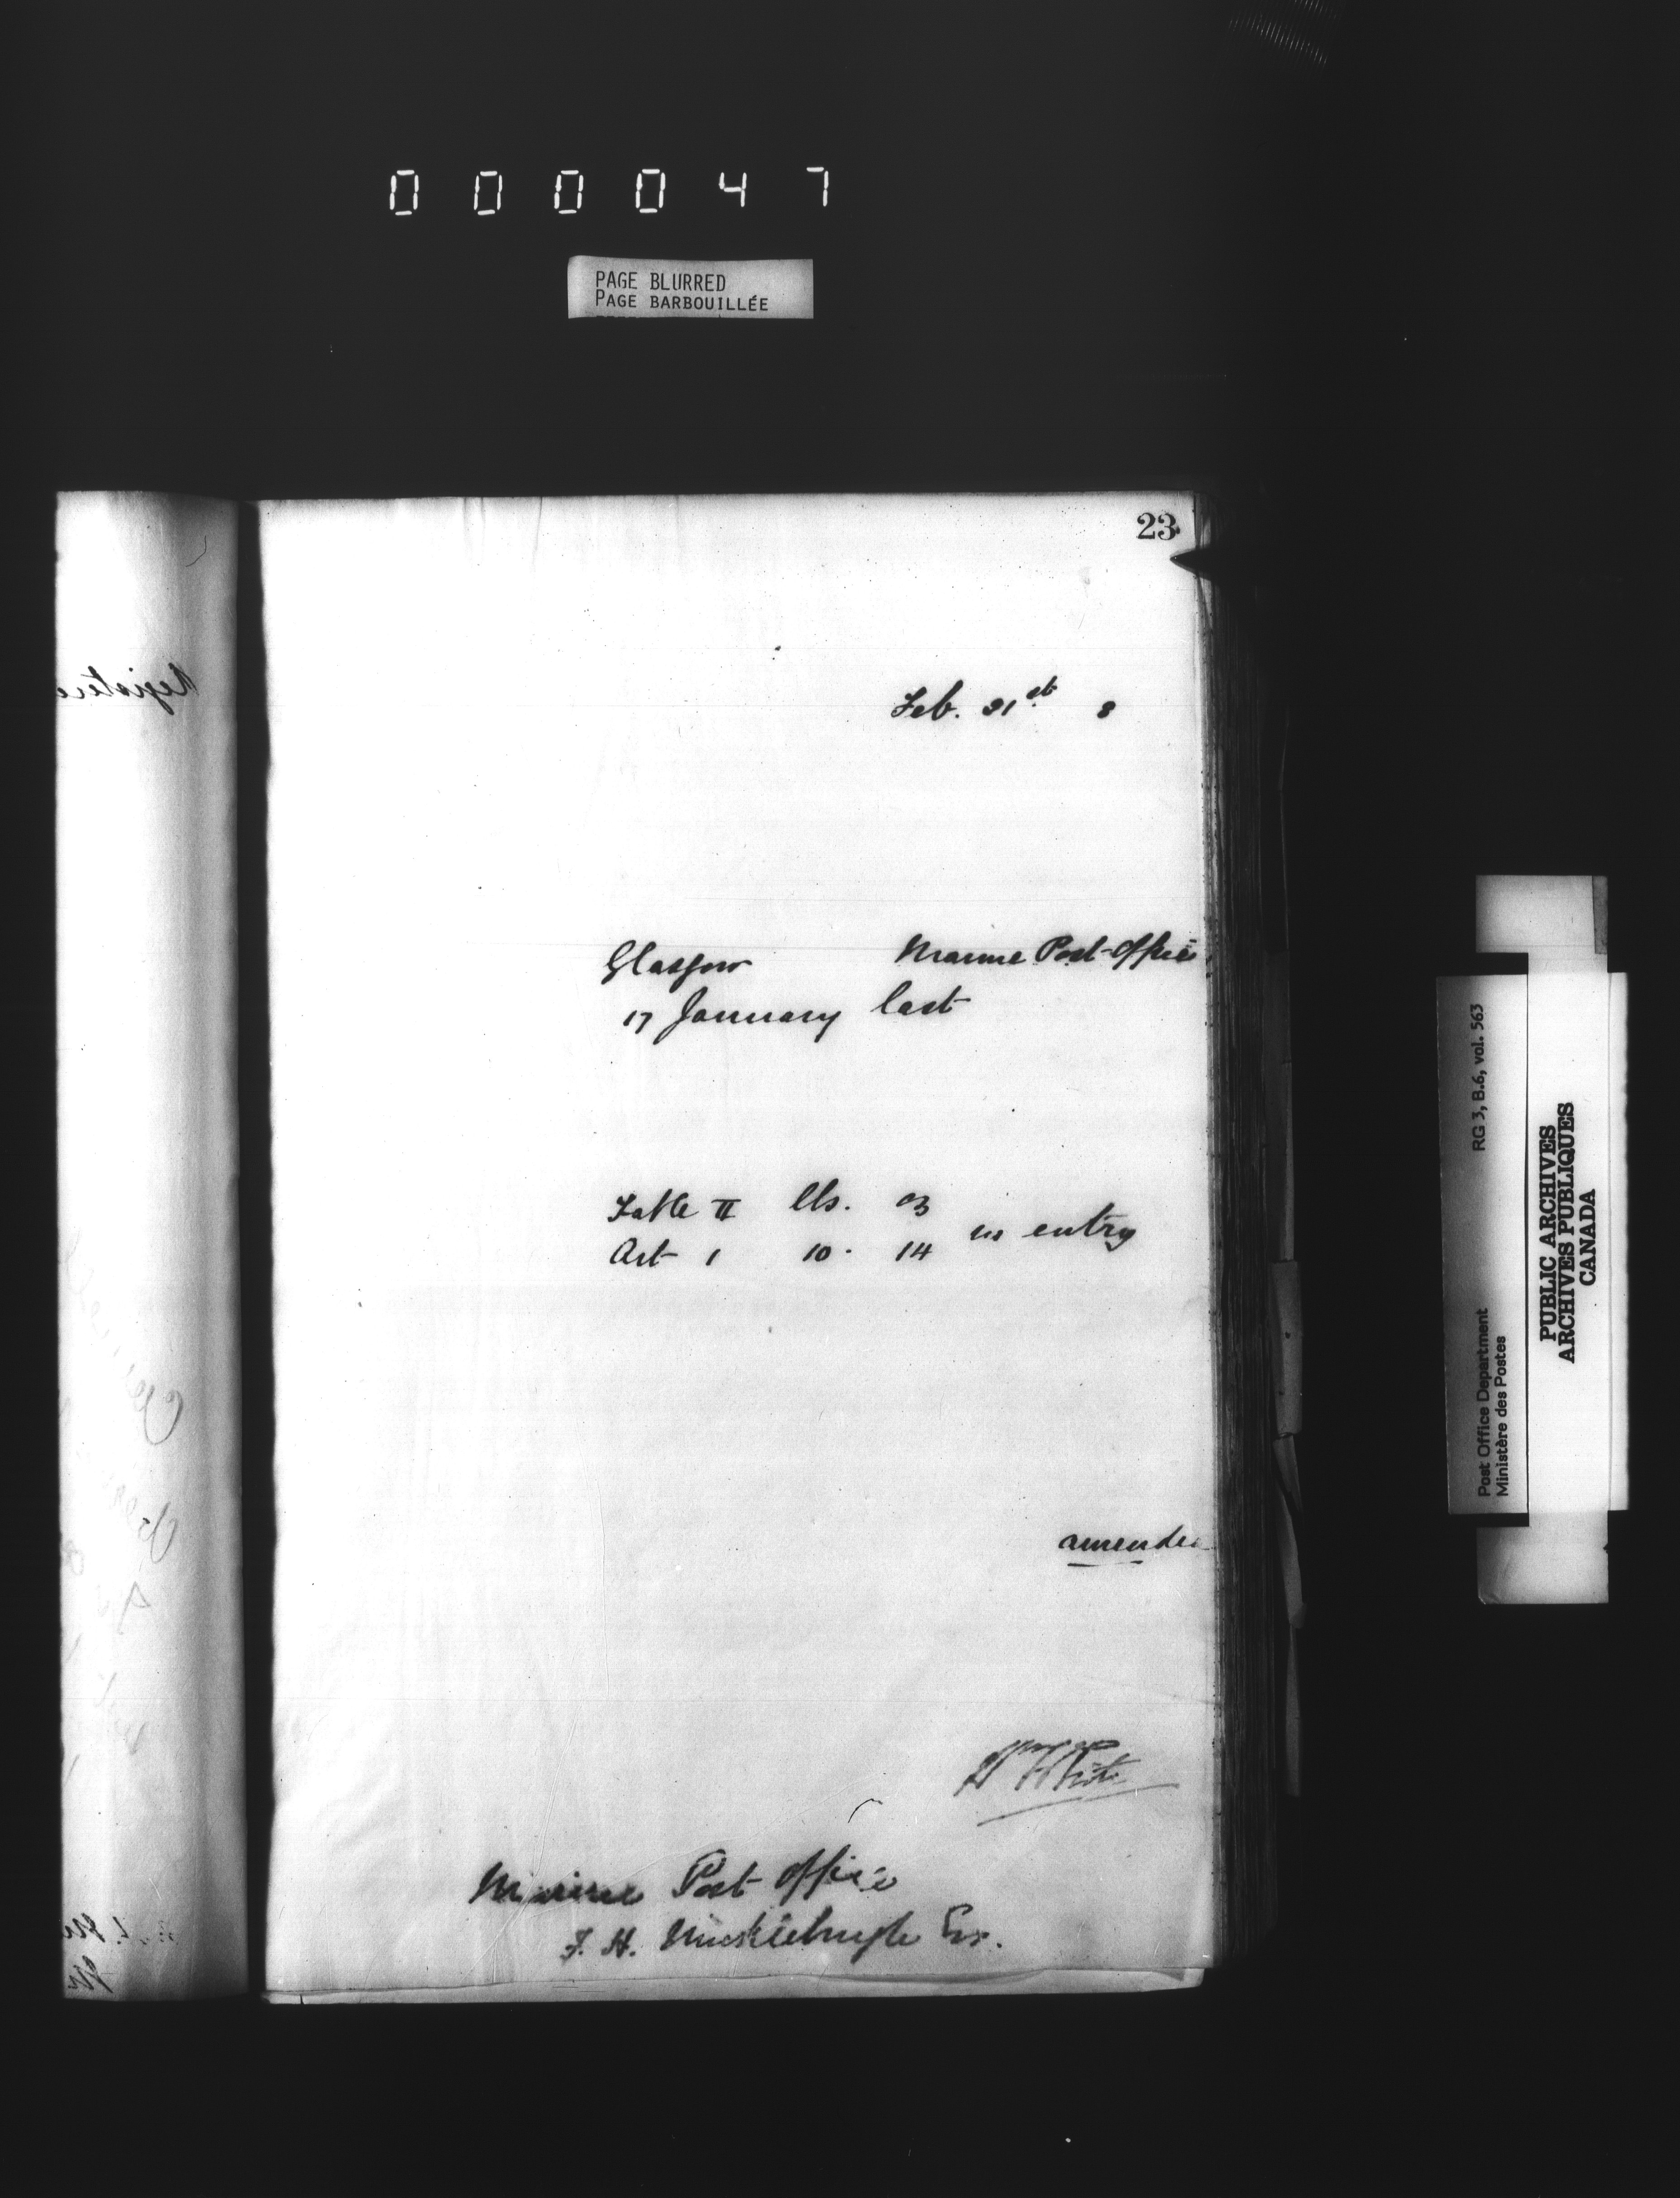 000047
PAGE BLURRED
PAGE BARBOUILLÉE
23
Feb. 21st 8
Glasgow Marine Post-Office
17 January last
Table II lbs. oz
Art 1 10. 14 no entry
amended
W H
Marine Post Office
F. H. Esr.
RG 3, B.6, vol. 563
Post Office Department
Ministère des Postes
PUBLIC ARCHIVES
ARCHIVES PUBLIQUES
CANADA